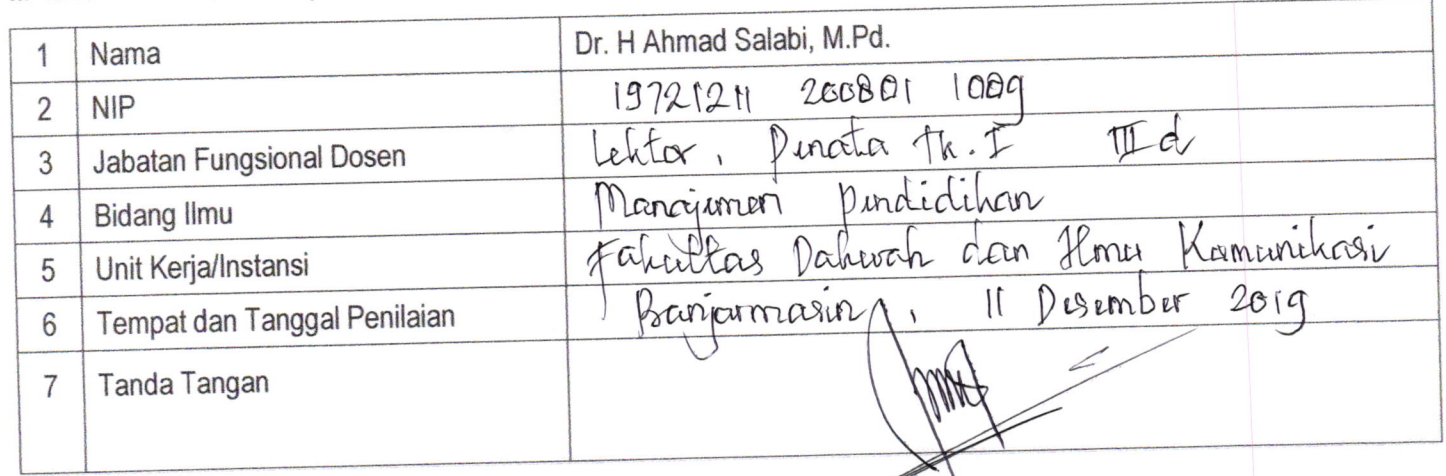 1 Nama Dr. H Ahmad Salabi, M.Pd.
2 NIP 19721211 200801 1009
3 Jabatan Fungsional Dosen Lektor, Penata Tk. I III d
4 Bidang Ilmu Manajemen Pendidikan
5 Unit Kerja/Instansi Fakultas Dakwah dan Ilmu Komunikasi
6 Tempat dan Tanggal Penilaian Banjarmasin, 11 Desember 2019
7 Tanda Tangan